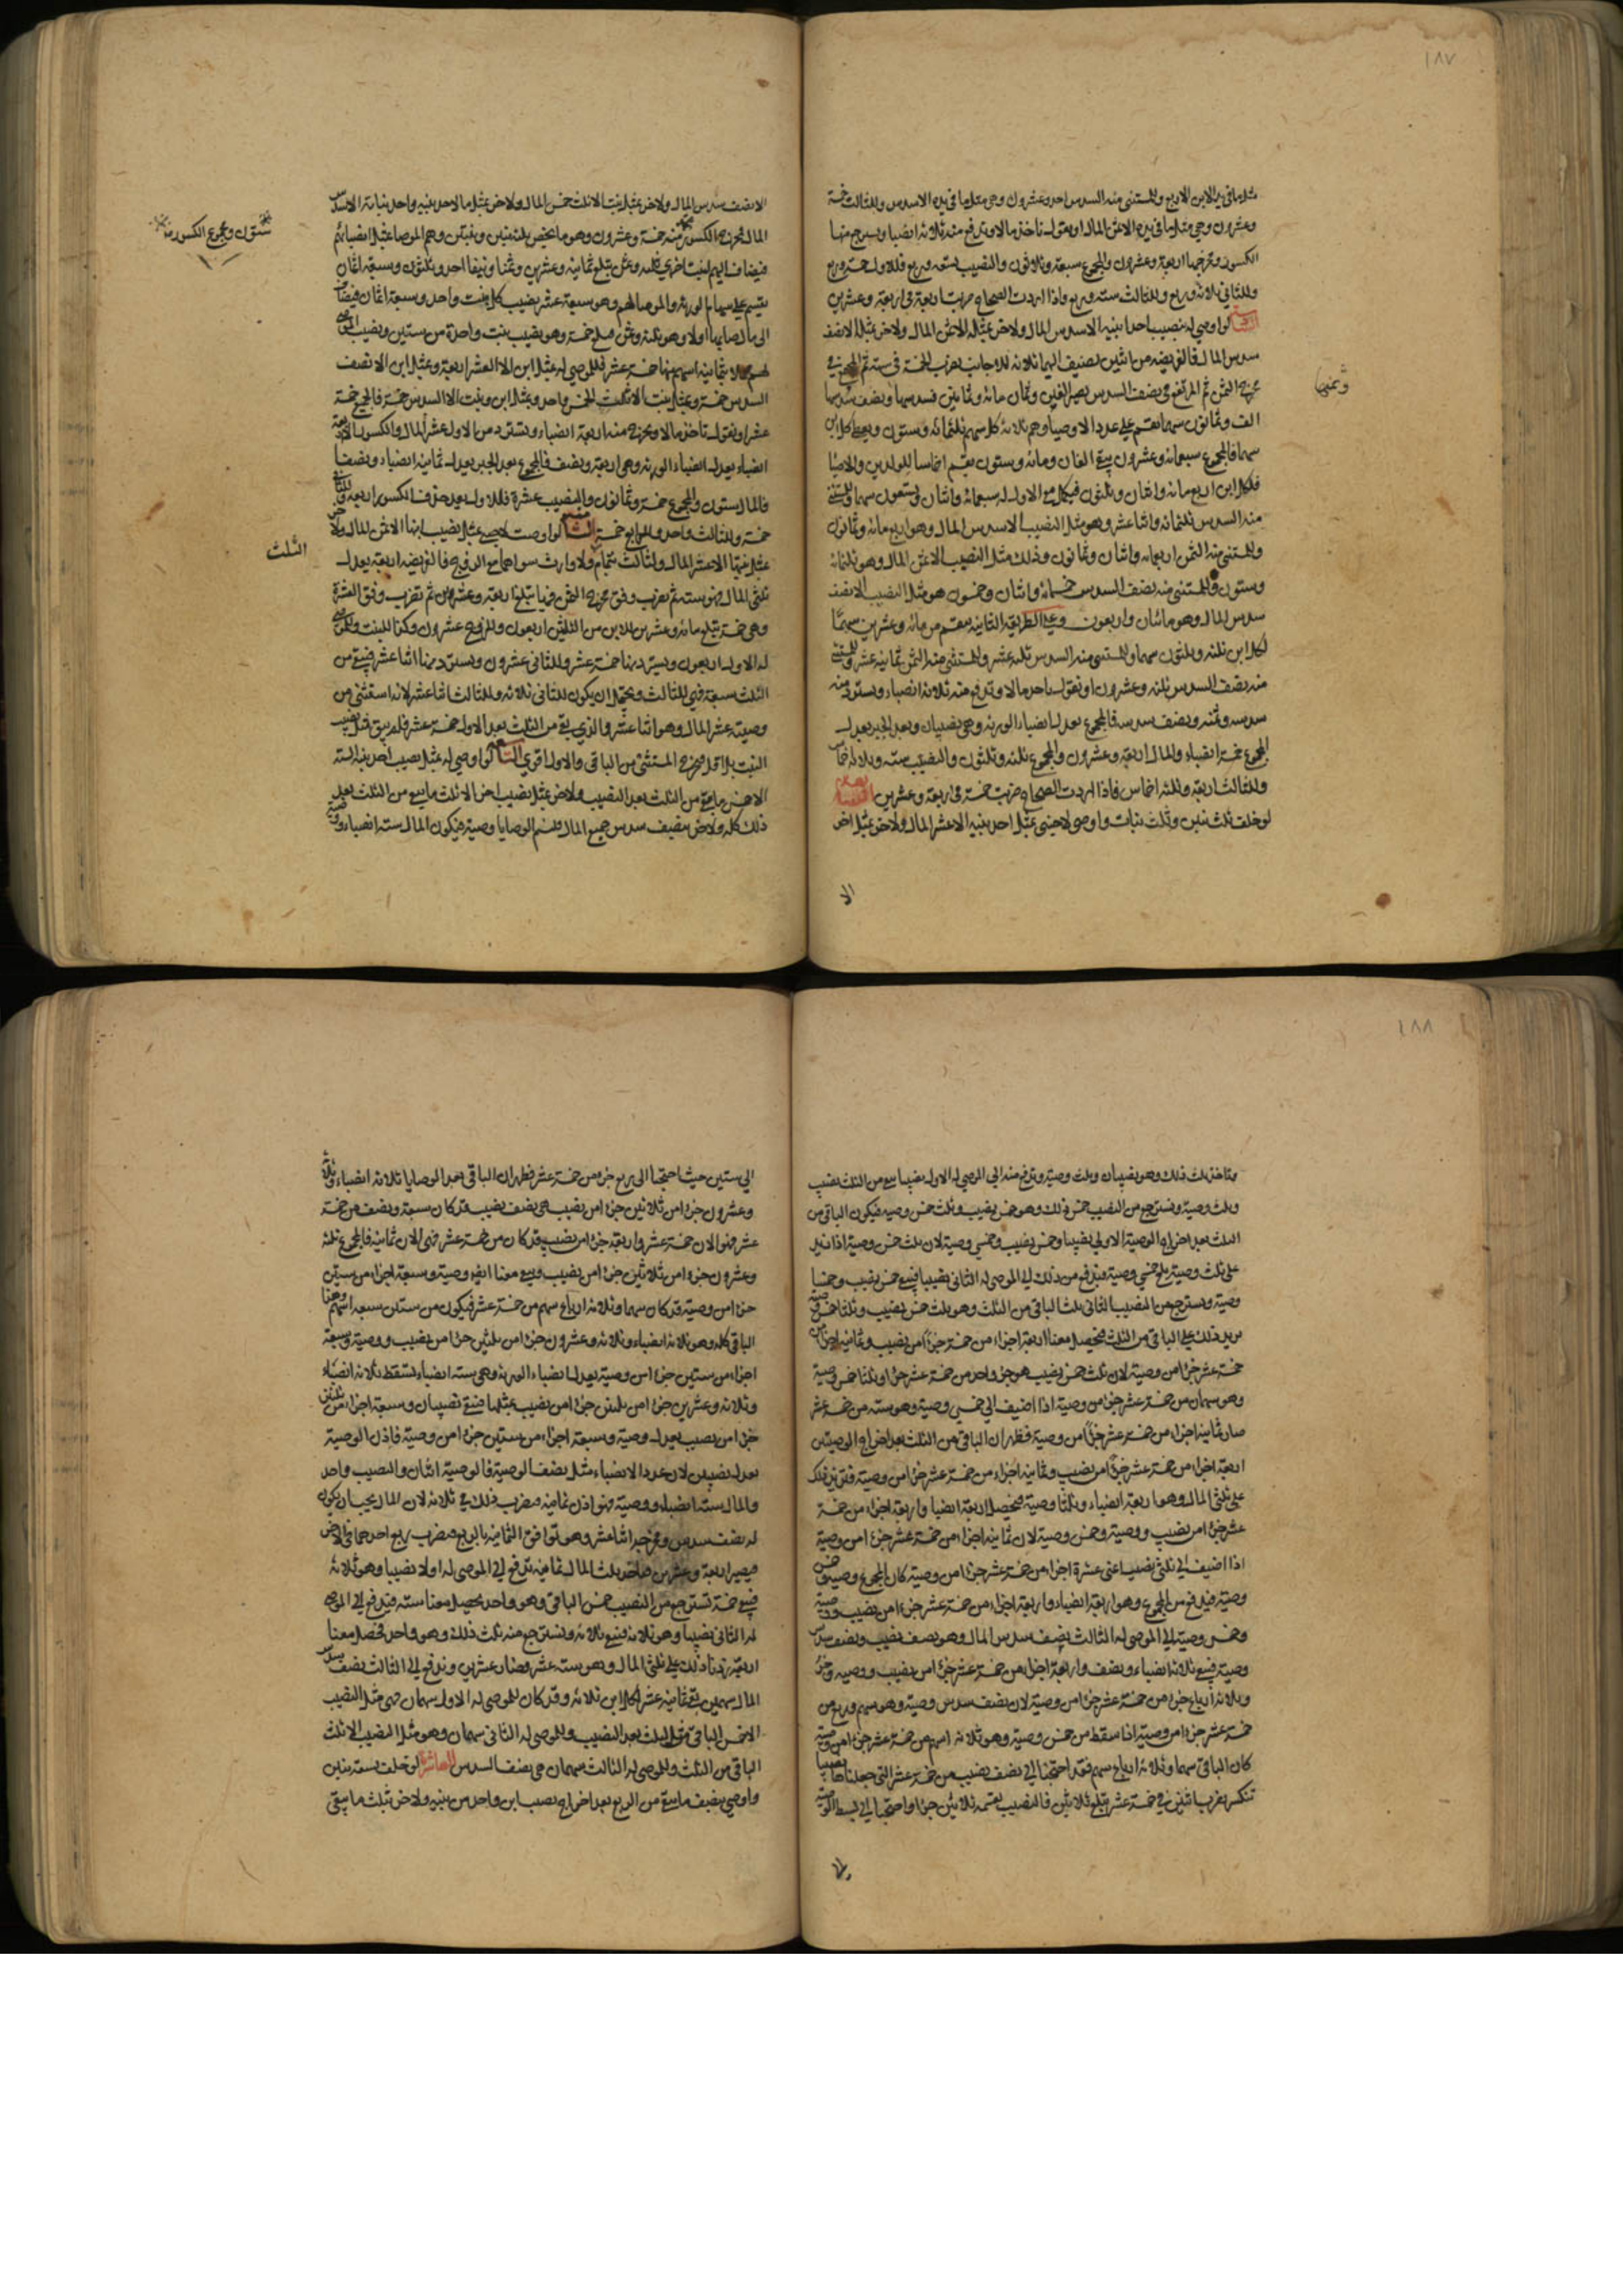 ١٨٧
مثل ما في يد الابن الاربع وللمستثنى منه السدس احد وعشرون وهي مثل ما في يده الا سدس وللثالث خمسة
وعشرون وهي مثل ما في يده الا ثمن المال او تقول تاخذ مالا وتدفع منه ثلاثة انصبا وتسترجع منها
الكسور ومخرجها اربعة وعشرون والمجموع سبعة وثلاثون والنصيب تسعة وربع فللاول خمسة وربع
وللثاني ثلاثة وربع وللثالث ستة وربع واذا اردت الصحاح ضربت اربعة في اربعة وعشرين
لو اوصى له بنصيب احد ابنيه الا سدس المال ولاخر بمثله الا ثمن المال ولاخر بمثله الا نصف
سدس المال فالفريضه من اثنين نضيف اليهما ثلاثة للاجانب نضرب الخمسة في ستة ثم المجتمع في
وثمنها
مخرج الثمن ثم المرتفع في نصف السدس يصير الفين وثمان مائة وثمانين فسدسها ونصف سدسها
الف وثمانون سهما تقسم على عدد الاوصياء وهم ثلاثة لكل سهم ثلثمائة وستون ويعطي كل ابن
سهما فالمجموع سبعمائة وعشرون يبقى الفان ومائة وستون تقسم اخماسا للولدين والاوصيا
فلكل ابن اربع مائة واثنان وثلثون فيكمل مع الاول له سبعمائة واثنان وتسعون سهما وللمستثنى
منه السدس ثلثمائة واثنا عشر وهو مثل النصيب الا سدس المال وهو اربع مائة وثمانون
وللمستثنى منه الثمن اربعمائة واثنان وثلثون وذلك مثل النصيب الا ثمن المال وهو ثلثمائة
وستون وللمستثنى منه نصف السدس خمسمائة واثنان وخمسون هو مثل النصيب الا نصف
سدس المال وهو مائتان واربعون وعلى الطريقة الثانية يقسم من مائة وعشرين سهما
لكل ابن ثلثة وثلثون سهما وللمستثنى منه السدس ثلثة عشر وللمستثنى منه الثمن ثمانية عشر وللمستثنى
منه نصف السدس ثلثة وعشرون او تقول ياخذ مالا وتدفع منه ثلاثة انصباء ويسترد منه
سدسه وثمنه ونصف سدسه فالمجموع يعدل انصباء الورثة وهي نصيبان وبعد الجبر يعدل
المجموع خمسة انصباء والمال اربعة وعشرون والمجموع ثلثة وثلثون والنصيب ستة وثلاثة اخماس
وللثالث اربعة وثلثة اخماس فاذا اردت الصحاح ضربت خمسة في اربعة وعشرين
لو خلف ثلث بنين وثلث بنات واوصى لاجنبي بمثل احد بنيه الا عشر المال ولاخر بمثل اخر
الا
الا نصف سدس المال ولاخر بمثل بنت الا ثلث خمس المال ولاخر بمثل ما لاحد بنيه واحد بناته الا سدس
المال فمخرج الكسور منه خمسة وعشرون وهو ما يخص ثلثة بنين وبنتين وهم الموصا بمثل انصبائهم
ستون ومجموع الكسور منه
فيضاف اليهم لبنت اخرى ثلثة وثمن تبلغ ثمانية وعشرين وثمنا ونيفا احد وثلثون وسبعة اثمان
يقسم على سهام الورثة والموصا لهم وهو سبعة عشر نصيب كل بنت واحد وسبعة اثمان فيضاف
الى ما اصابها اولا وهو ثلثة وثمن مبلغ خمسة وهو نصيب بنت واحدة من ستين
السدس خمسة وبمثل بنت الا ثلث الخمس واحد وبمثل ابن وبنت الا السدس خمسة فالجميع خمسة
عشر او تقول تاخذ مالا وتخرج منه اربعة انصباء وتسترد من الاول عشر المال والكسور الاربعة
انصباء يعدل انصباء الورثة وهي اربعة ونصف فالمجموع بعد الجبر يعدل ثمانية انصباء ونصفا
فالمال ستون والمجموع خمسة وثمانون والنصيب عشرة فللاول بعد حذف الكسور اربعة وللثاني
خمسة وللثالث واحد وللرابع خمسة لو اوصت لاجنبي بمثل نصيب ابنها الا ثمن المال ولاخر
الثلث
بمثل بنتها الا عشر المال ولثالث بتمام ولا وارث سواهما مع الزوج فالفريضه اربعة يعدل
ثلثي المال فهو ستة ثم نضرب وفق مخرج الثمن فيها تبلغ اربعة وعشرين ثم نضرب وفق العشرة
وهي خمسة يبلغ مائة وعشرين للابن من الثلثين اربعون وللزوج عشرون وكذا للبنت وللموصى
له الاول اربعون ويسترد منها خمسة عشر وللثاني عشرون ويسترد منها اثنا عشر فيبقى من
الثلث سبعة فهي للثالث ويحتمل ان يكون للثاني ثلاثة وللثالث اثنا عشر لانه استثنى من
وصيته عشر المال وهو اثنا عشر والذي بقي من الثلث بعد الاول خمسة عشر فلم يبق قبل نصيب
البنت بلا اقل فيخرج المستثنى من الباقي والاول اقوى لو اوصى له بمثل نصيب احد بنيه الستة
الا خمس ما يبقى من الثلث بعد النصيب ولاخر بمثل نصيب اخر الا ثلث ما يبقى من الثلث بعد
ذلك كله ولاخر بنصف سدس جميع المال قسم الوصايا وصية فيكون المال ستة انصباء ووصية
١٨٨
وتاخذ ثلث ذلك وهو نصيبان وثلث وصية وتدفع منه الى الموصى له الاول نصيبا يبقى من الثلث نصيب
وثلث وصية وتسترجع من النصيب خمس ذلك وهو خمس نصيب وثلث خمس وصية فيكون الباقي من
الثلث بعد اخراج الوصية الاولى نصيبا وخمس نصيب وخمسي وصية لان ثلث خمس وصية اذا زيد
على ثلث وصية بلغ خمسي وصية فيدفع من ذلك الى الموصى له الثاني نصيبا فيبقى خمس نصيب وخمسا
وصية ويسترجع من النصيب الثاني ثلث الباقي من الثلث وهو ثلث خمس نصيب وثلثا خمس وصية
يزيد ذلك على الباقي من الثلث فيحصل معنا اربعة اجزاء من خمسة عشر جزءا من نصيب وثمانية اجزاء من
خمسة عشر جزءا من وصية لان ثلث خمس نصيب هو جزء واحد من خمسة عشر جزءا وثلثا خمس وصية
وهو سهمان من خمسة عشر جزءا من وصية اذا اضيف الى خمسي وصية وهو ستة من خمسة عشر
صار ثمانية اجزاء من خمسة عشر جزءا من وصية فظهر ان الباقي من الثلث بعد اخراج الوصيتين
اربعة اجزاء من خمسة عشر جزءا من نصيب وثمانية اجزاء من خمسة عشر جزءا من وصية فتزيد ذلك
على ثلثي المال وهو اربعة انصباء وثلثا وصية فيحصل اربعة انصبا واربعة اجزاء من خمسة
عشر جزءا من نصيب ووصية وخمس وصية لان ثمانية اجزاء من خمسة عشر جزءا من وصية
اذا اضيف الى ثلثي نصيب اعني عشرة اجزاء من خمسة عشر جزءا من وصية كان المجموع وصية وخمس
وصية فيدفع من المجموع وهو اربعة انصباء واربعة اجزاء من خمسة عشر جزءا من نصيب ووصية
وخمس وصية الى الموصى له الثالث نصف سدس المال وهو نصف نصيب ونصف سدس
وصية فيبقى ثلاثة انصباء ونصف واربعة اجزاء من خمسة عشر جزءا من نصيب ووصية وجزء
وثلاثة ارباع جزء من خمسة عشر جزءا من وصية لان نصف سدس وصية وهو سهم وربع من
خمسة عشر جزءا من وصية اذا سقط من خمس وصية وهو ثلاثة اسهم من خمسة عشر جزءا من وصية
كان الباقي سهما وثلاثة ارباع سهم فقد احتجنا الى نصف نصيب من خمسة عشر التي جعلناها نصيبا
تنكسر نضرب اثنين في خمسة عشر تبلغ ثلاثين فالنصيب يقسم ثلاثين جزءا واحتجنا الى بسط الوصية
الى ستين حيث احتجنا الى ربع جزء من خمسة عشر فظهر ان الباقي بعد الوصايا ثلاثة انصباء وثلاثة
وعشرون جزءا من ثلاثين جزءا من نصيب هي نصف نصيب قد كان سبعة ونصف من خمسة
عشر فهو الان خمسة عشر واربعة جزءا من نصيب قد كان من خمسة عشر فهي الان ثمانية فالمجموع ثلثة
وعشرون جزءا من ثلاثين جزءا من نصيب ويبقى معنا ايضا وصية وسبعة اجزاء من ستين
جزءا من وصية قد كان سهما وثلاثة ارباع سهم من خمسة عشر فيكون من ستين سبعة اسهم وهذا
الباقي كله وهو ثلاثة انصباء وثلاثة وعشرون جزءا من ثلثين جزءا من نصيب ووصية وسبعة
اجزاء من ستين جزءا من وصية يعدل انصباء الورثة وهي ستة انصباء يسقط ثلاثة انصباء
وثلاثة وعشرين جزءا من ثلثين جزءا من نصيب بمثلها فيبقى نصيبان وسبعة اجزاء من ثلثين
جزءا من نصيب يعدل وصية وسبعة اجزاء من ستين جزءا من وصية فاذن الوصية
يعدل نصيبين لان عدد الانصباء مثل نصف الوصية فالوصية اثنان والنصيب واحد
والمال ستة انصباء ووصية فهو اذن ثمانية فيضرب ذلك في ثلاثة لان المال يجب ان يكون
له نصف سدس ومخرجه اثنا عشر وهو توافق الثمانية بالربع فيضرب ربع احدهما في الاخر
فيصير اربعة وعشرين فناخذ ثلث المال ثمانية تدفع الى الموصى له اولا نصيبا وهو ثلاثة
فيبقى خمسة تسترجع من النصيب خمس الباقي وهو واحد يحصل معنا ستة فيدفع الى الموصى
له الثاني نصيبا وهو ثلاثة فيبقى ثلاثة ونسترجع منه ثلث ذلك وهو واحد فحصل معنا
اربعة زدنا ذلك على ثلثي المال وهو ستة عشر فصار عشرين وندفع الى الثالث نصف سدس
المال سهمين يبقى ثمانية عشر لكل ابن ثلاثة وقد كان للموصى له الاول سهمان هي مثل النصيب
الا خمس الباقي من الثلث بعد النصيب وللموصى له الثاني سهمان وهو مثل النصيب الا ثلث
الباقي من الثلث وللموصى له الثالث سهمان هي نصف السدس العاشرة لو خلف تسعة بنين
واوصى بنصف ما يبقى من الربع بعد اخراج نصيب ابن واحد من بنيه ولاخر بثلث ما يبقى